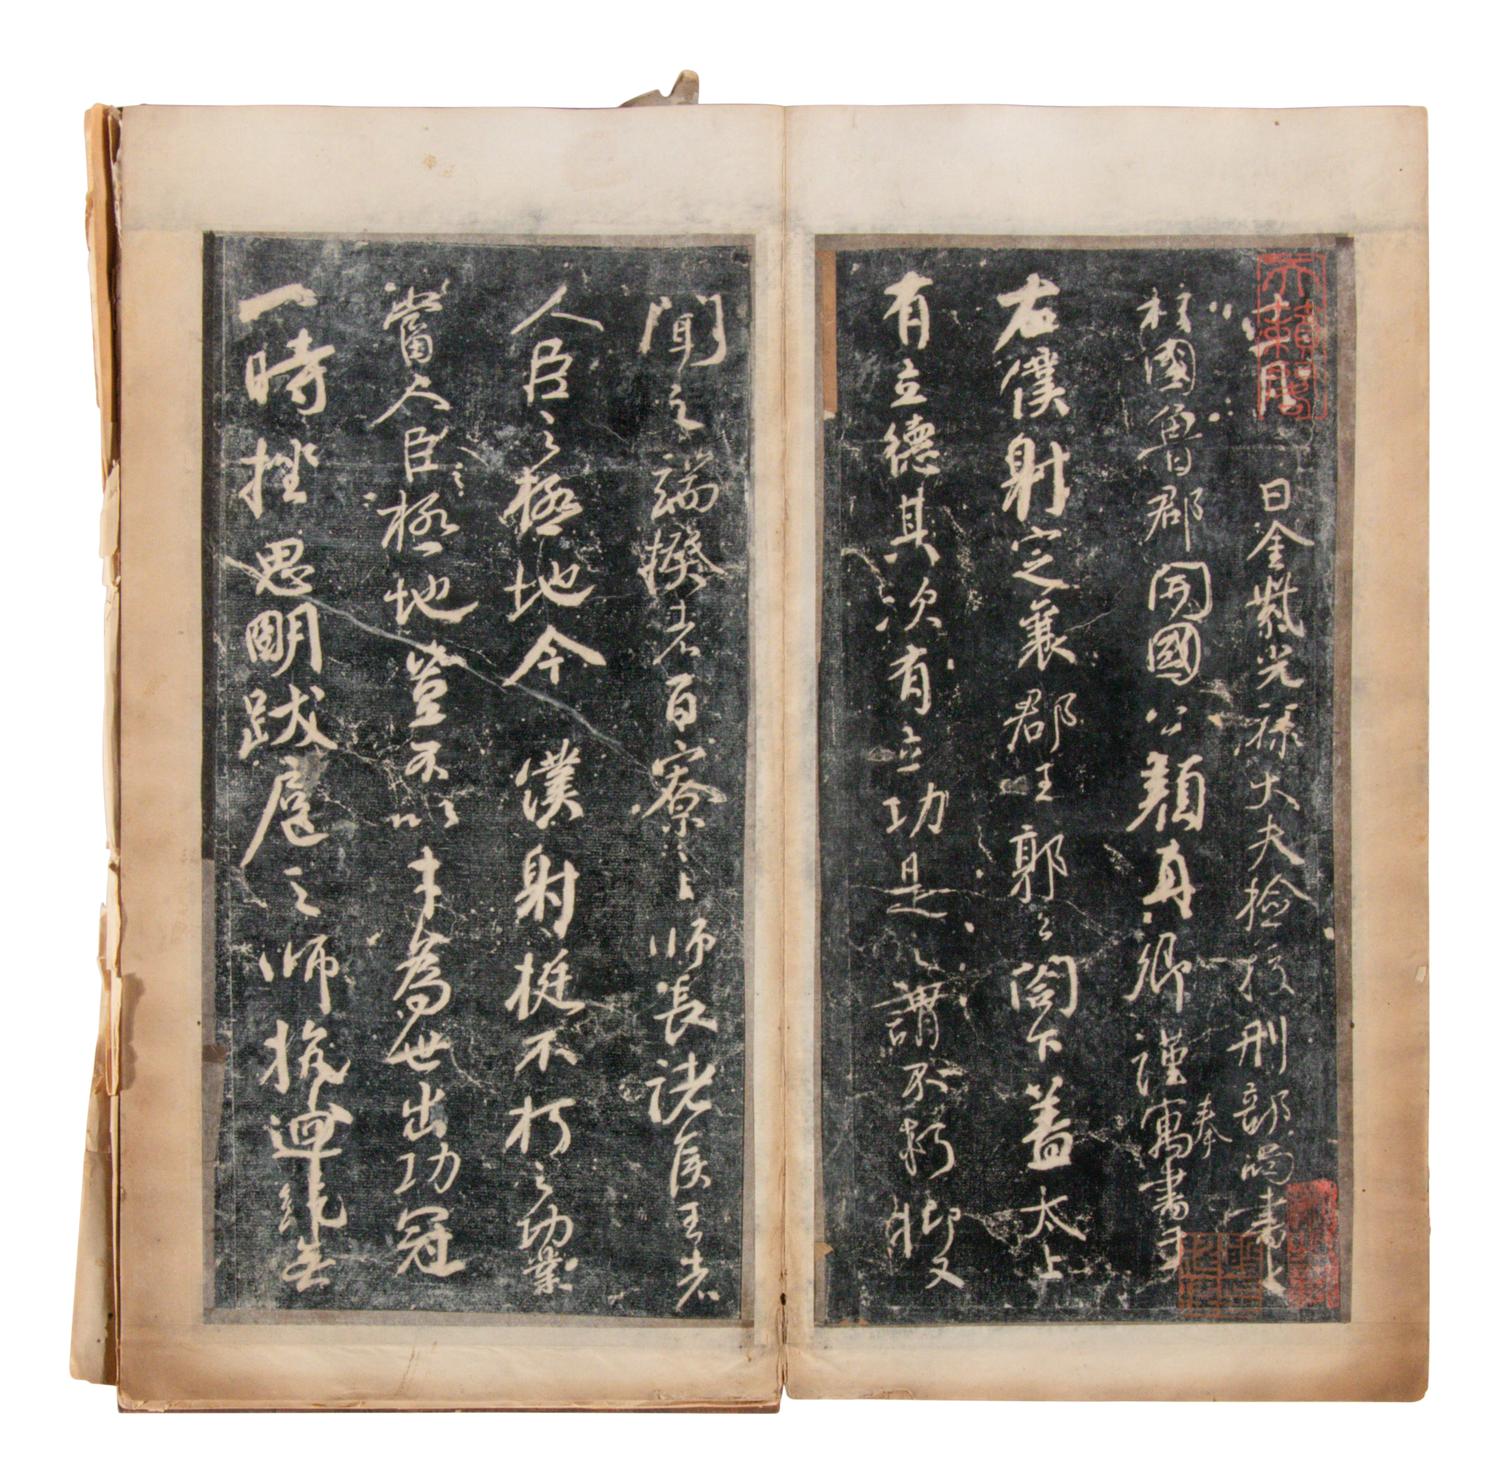 十一月日金紫光祿大夫檢校刑部尚書上
柱國魯郡開國公顏真卿謹奉寓書于
右僕射定襄郡王郭公閤下蓋太上
有立德其次有立功是之謂不朽抑又
聞之端揆者百寮之師長諸侯王者
人臣之極地今僕射挺不朽之功業
當人臣之極地豈不以才為世出功冠
一時挫思明跋扈之師抗迴紇無
天籟閣